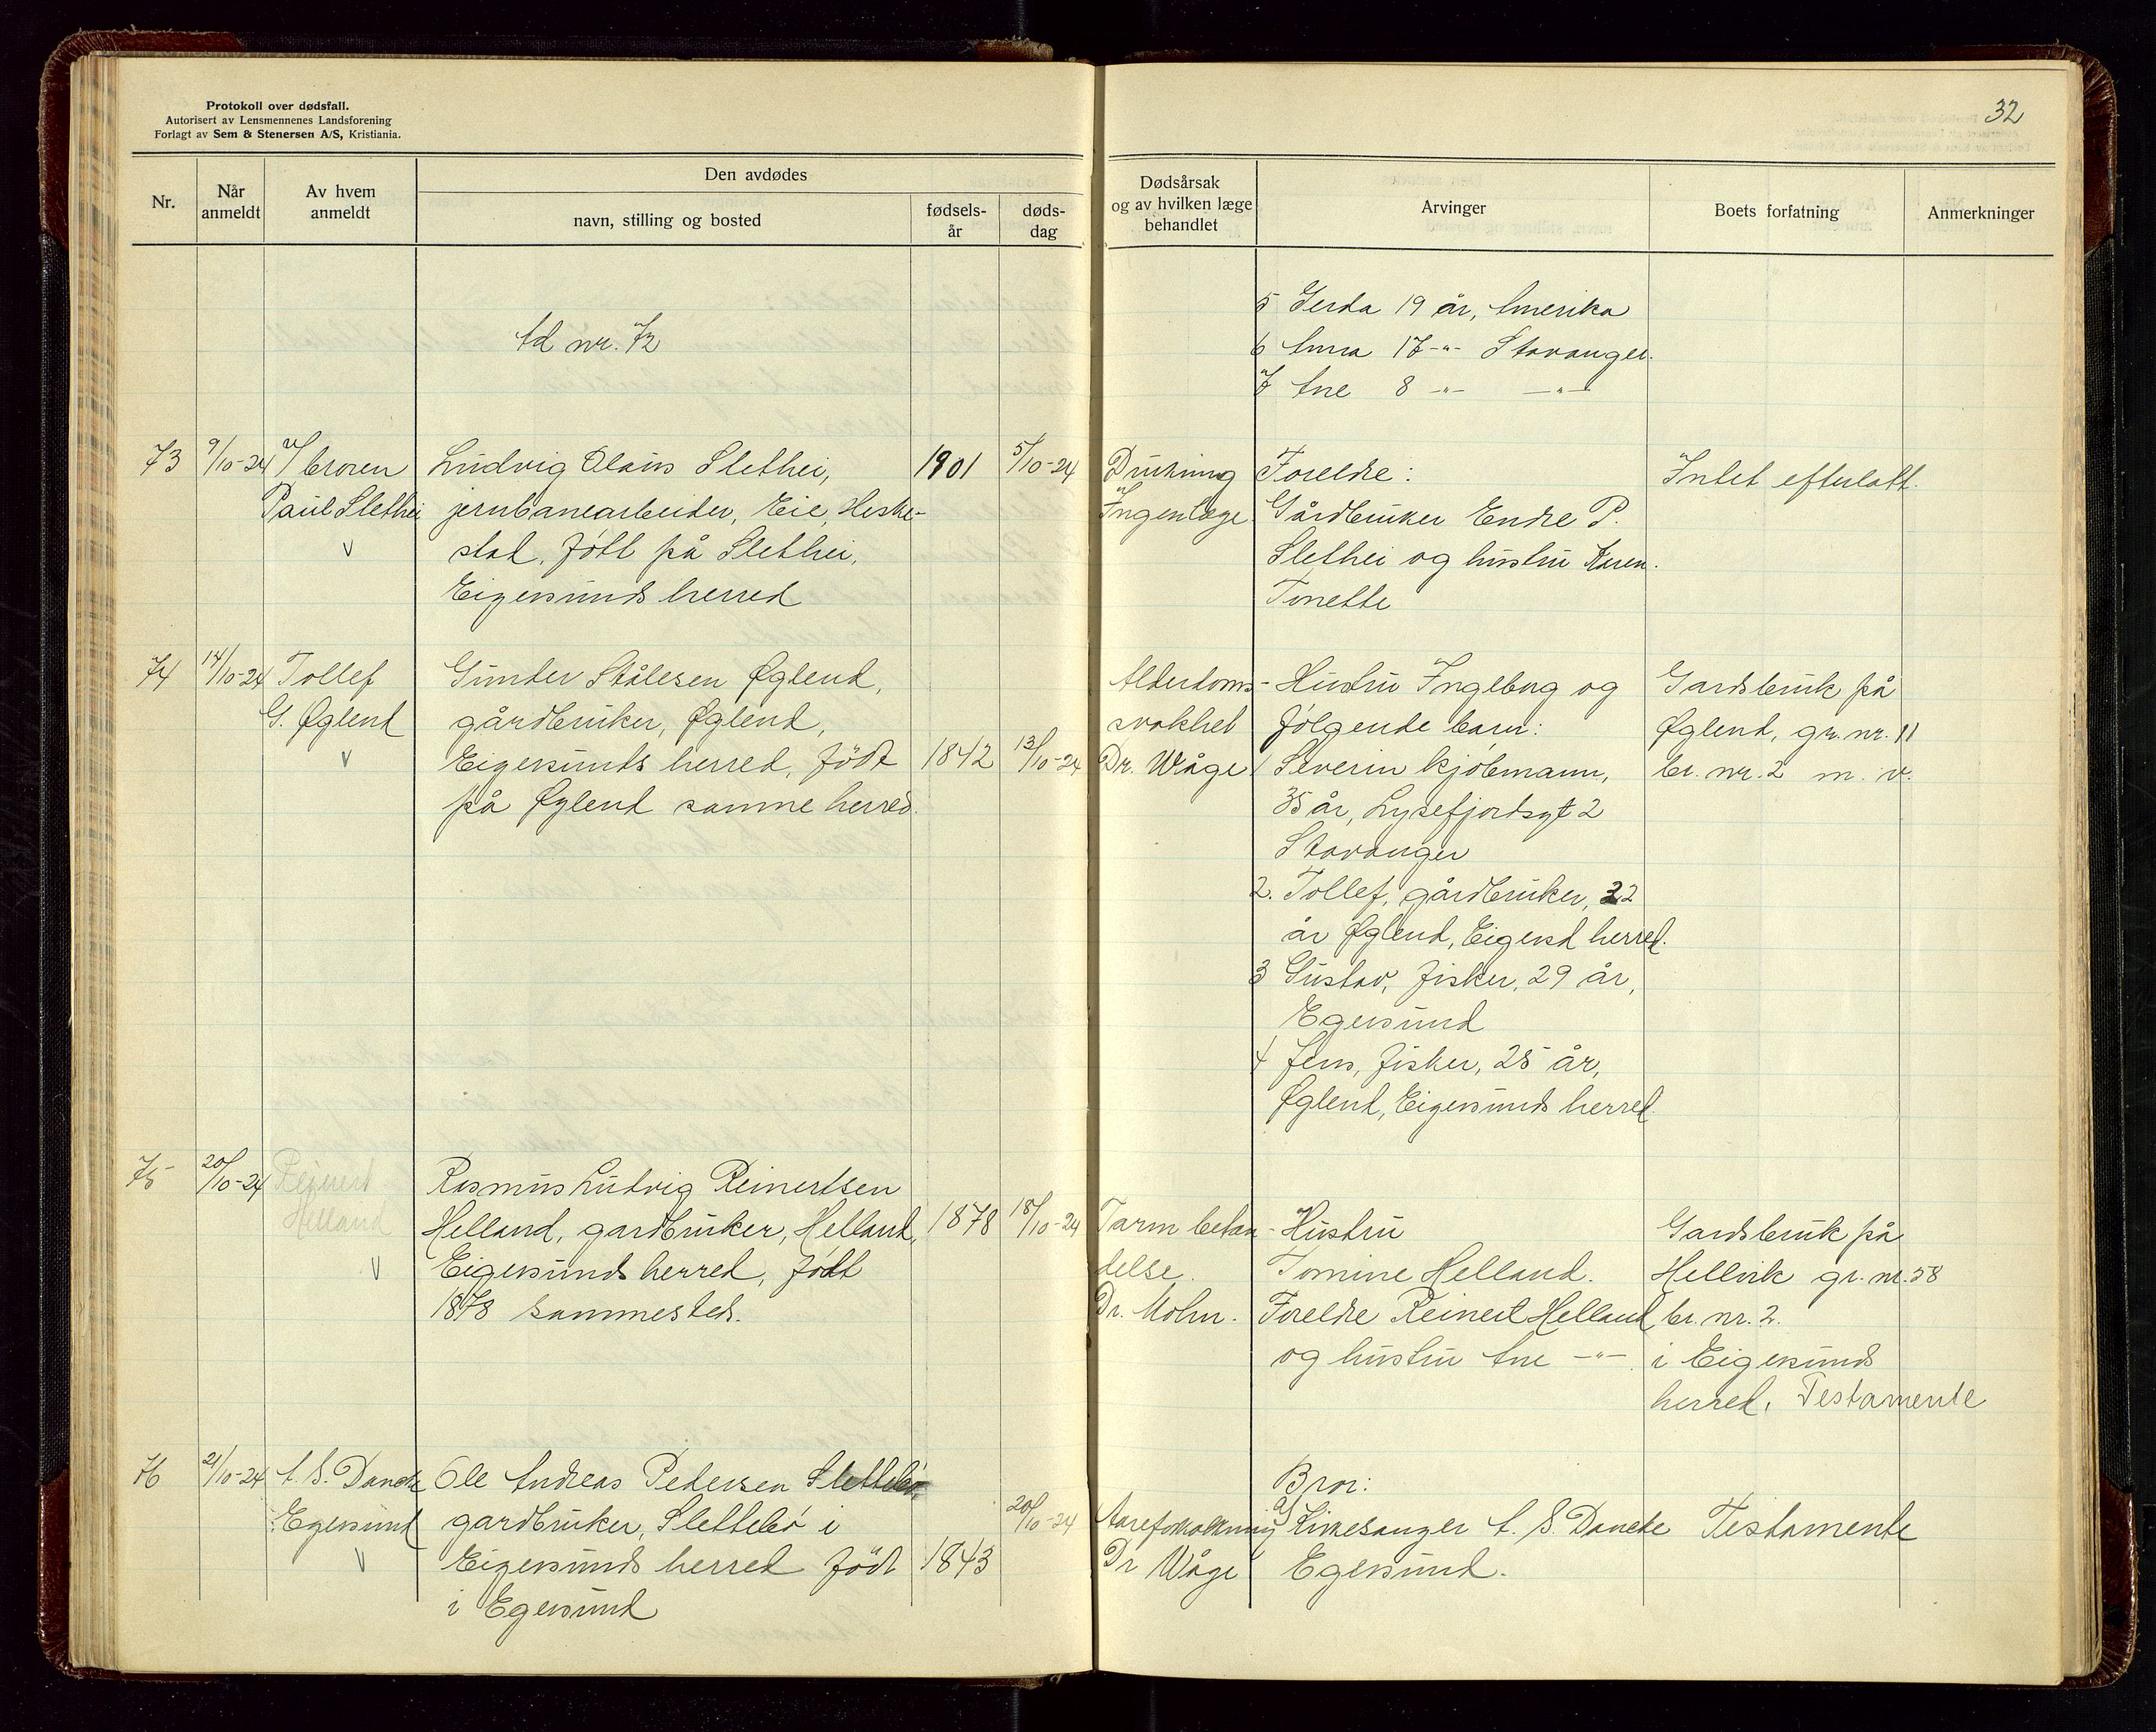 Protokoll over dødsfall.
Autorisert av Lensmennenes Landsforening
Forlagt av Sem & Stenersen A/S, Kristiania.
32
Nr.
Når anmeldt
Av hvem anmeldt
Den avdødes
navn, stilling og bosted
fødsels-år
døds-dag
Dødsårsak og av hvilken læge behandlet
Arvinger
Boets forfatning
Anmerkninger
Ad nr. 72
5 Gerda 19 år, Amerika
6 Anna 17 -"- Stavanger.
7 Ane 8 -"- -"-
73
9/10-24
v/ broren
Paul Slethei
v
Ludvig Olaus Slethei,
jernbanearbeider, Eie, Heske-
stad, født på Slethei,
Eigersunds herred
1901
5/10-24
Drukning
Ingen læge
Foreldre:
Gårdbruker Endre P.
Slethei og hustru Karen
Tonette
Intet efterlatt.
74
14/10-24
Tollef
G. Øglend
v
Gunder Stålesen Øglend,
gårdbruker, Øglend,
Eigersunds herred, född
på Øglend samme herred.
1842
13/10-24
Alderdoms-
svakhet
Dr. Wåge
Hustru Ingeborg og
følgende barn:
1 Severin kjøbmann,
35 år, Lysefjordsgt 2
Stavanger
2. Tollef, gårdbruker, 32
år Øglend, Eigersd herred.
3 Gustav, fisker, 29 år,
Egersund
4 Jens, fisker, 25 år,
Øglend, Eigersunds herred.
Gardsbruk på
Øglend, gr. nr. 11
br. nr. 2 m. v.
75
20/10-24
Reinert
Helland
v
Rasmus Ludvig Reinertsen
Helland, gardbruker, Helland,
Eigersunds herred, født
1878 sammesteds.
1878
18/10-24
Tarm betæn-
delse.
Dr. Mohn.
Hustru
Tomine Helland.
Foreldre Reinert Helland
og hustru Ane -"-
Gardsbruk på
Hellvik gr. nr. 58
br. nr. 2.
i Eigersunds
herred. Testamente
76
21/10-24
A. S. Dancke
Egersund
v
Ole Andreas Pedersen Slettebö,
gardbruker, Slettebö i
Eigersunds herred född
i Egersund
1843
20/10-24
Aareforkalkning
Dr Wåge
Bror:
a) Kirkesanger A. S. Dancke
Egersund.
Testamente